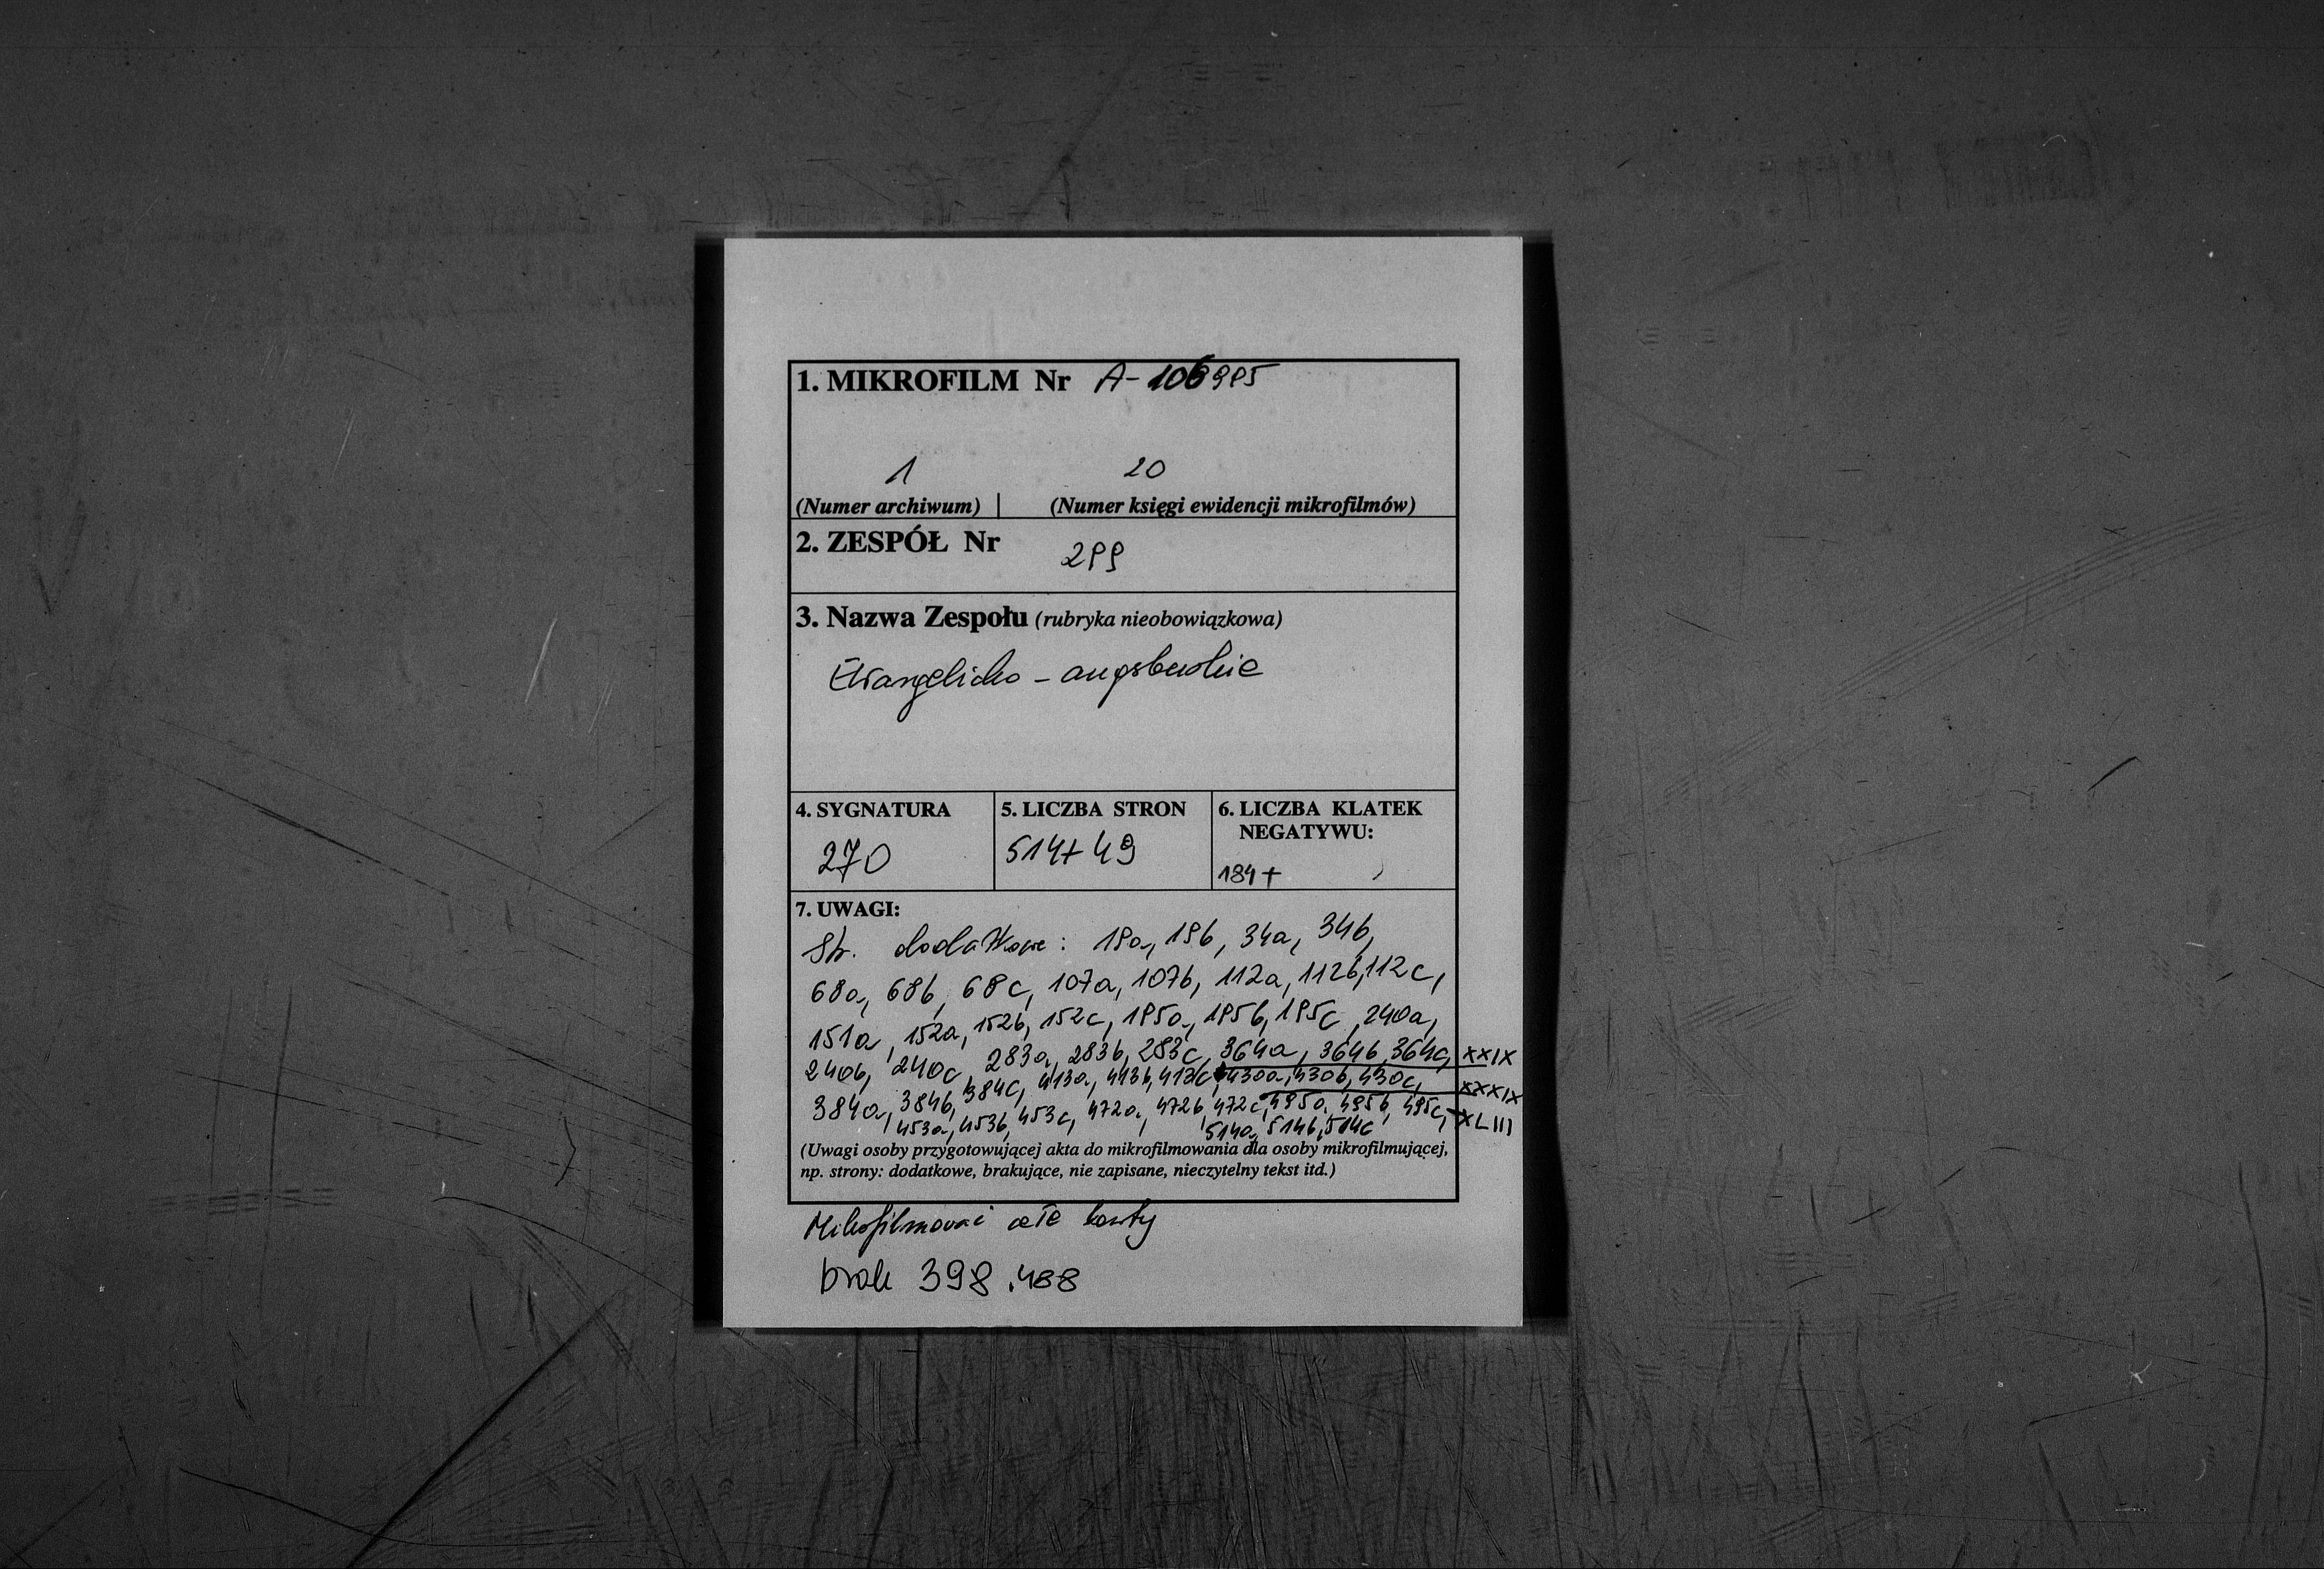 1. MIKROFILM Nr A-106985
1 20
(Numer archiwum) | (Numer księgi ewidencji mikrofilmów)
2. ZESPÓŁ Nr 289
3. Nazwa Zespołu (rubryka nieobowiązkowa)
Ewangelicko - augsburskie
4. SYGNATURA 5. LICZBA STRON 6. LICZBA KLATEK
NEGATYWU:
270 514+49 184+
7. UWAGI:
Str. dodatkowe: 18a, 18b, 34a, 34b,
68a, 68b, 68c, 107a, 107b, 112a, 112b, 112c,
151a, 152a, 152b, 152c, 185a, 185b, 185c, 240a,
240b, 240c, 283a, 283b, 283c, 364a, 364b, 364c, XXIX
384a, 384b, 384c, 413a, 413b, 413c, 430a, 430b, 430c, XXXIX
453a, 453b, 453c, 472a, 472b, 472c, 495a, 495b, 495c, XLIII
514a, 514b, 514c
(Uwagi osoby przygotowującej akta do mikrofilmowania dla osoby mikrofilmującej,
np. strony: dodatkowe, brakujące, nie zapisane, nieczytelny tekst itd.)
Mikrofilmować całe karty
brak 398, 488